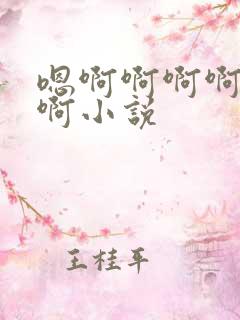 嗯啊啊啊啊
啊小说
王桂平